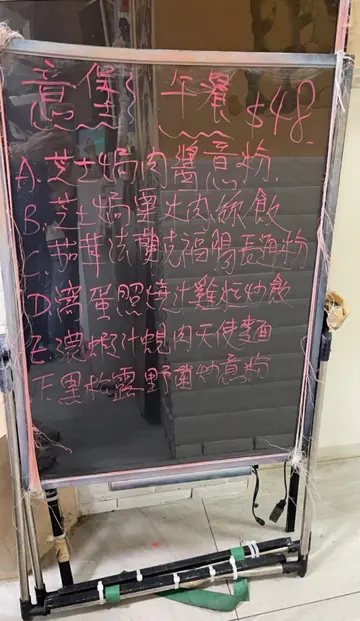 意堡 午餐 $48
A. 芝士焗肉醬意粉
B. 芝士焗粟米肉絲飯
C. 茄蓉法蘭克福腸長通粉
D. 窩蛋照燒汁雞粒炒飯
E. 濃蝦汁蜆肉天使麵
F. 黑松露野菌炒意粉